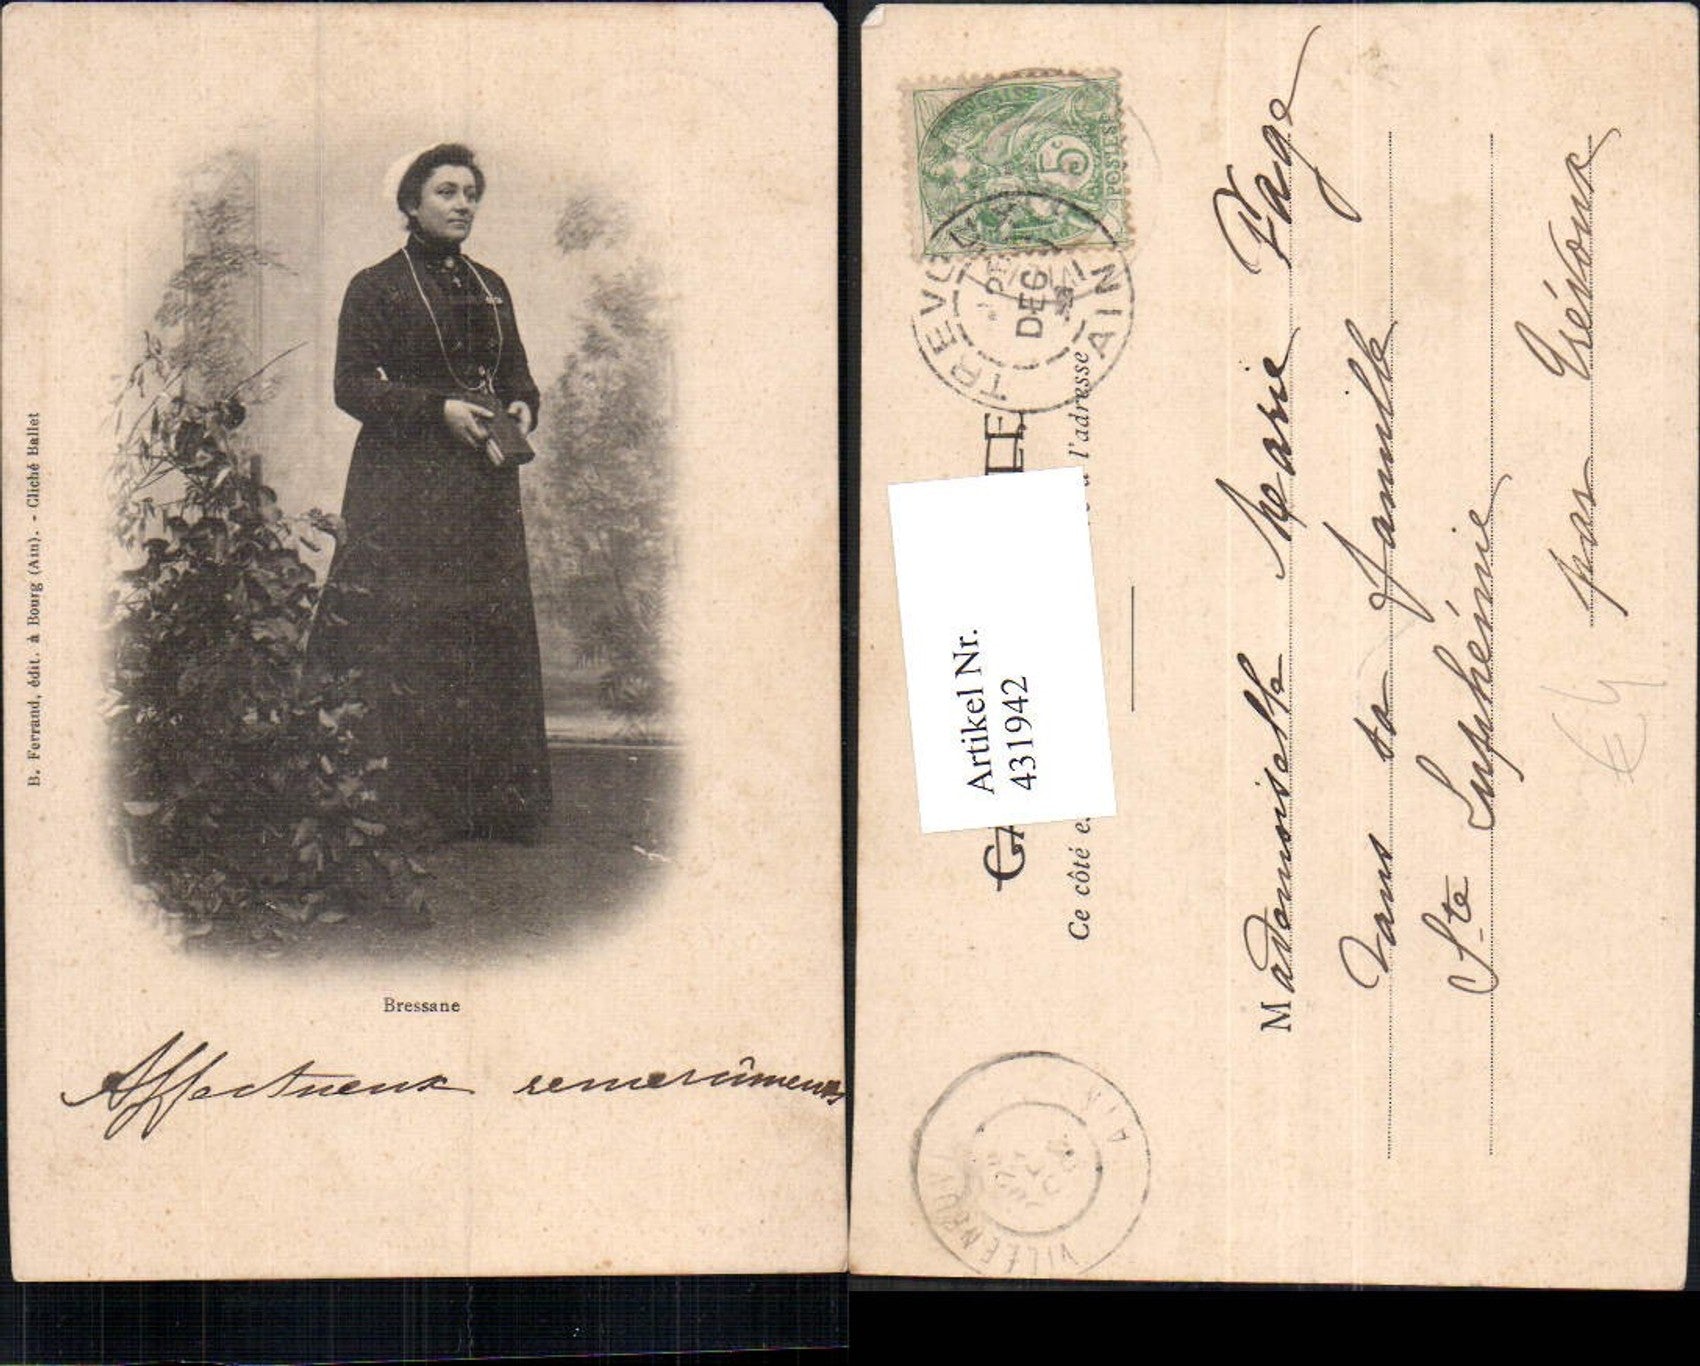 B. Ferrand, édit. à Bourg (Ain). - Cliché Ballet
Bressane
Affectueux remerciments
5c
POSTES
TREVOUX
DEC
AIN
Ce côté e
l'adresse
Artikel Nr.
431942
Mademoiselle Marie Fage
dans sa famille
Ste Euphémie
par Trévoux
AIN